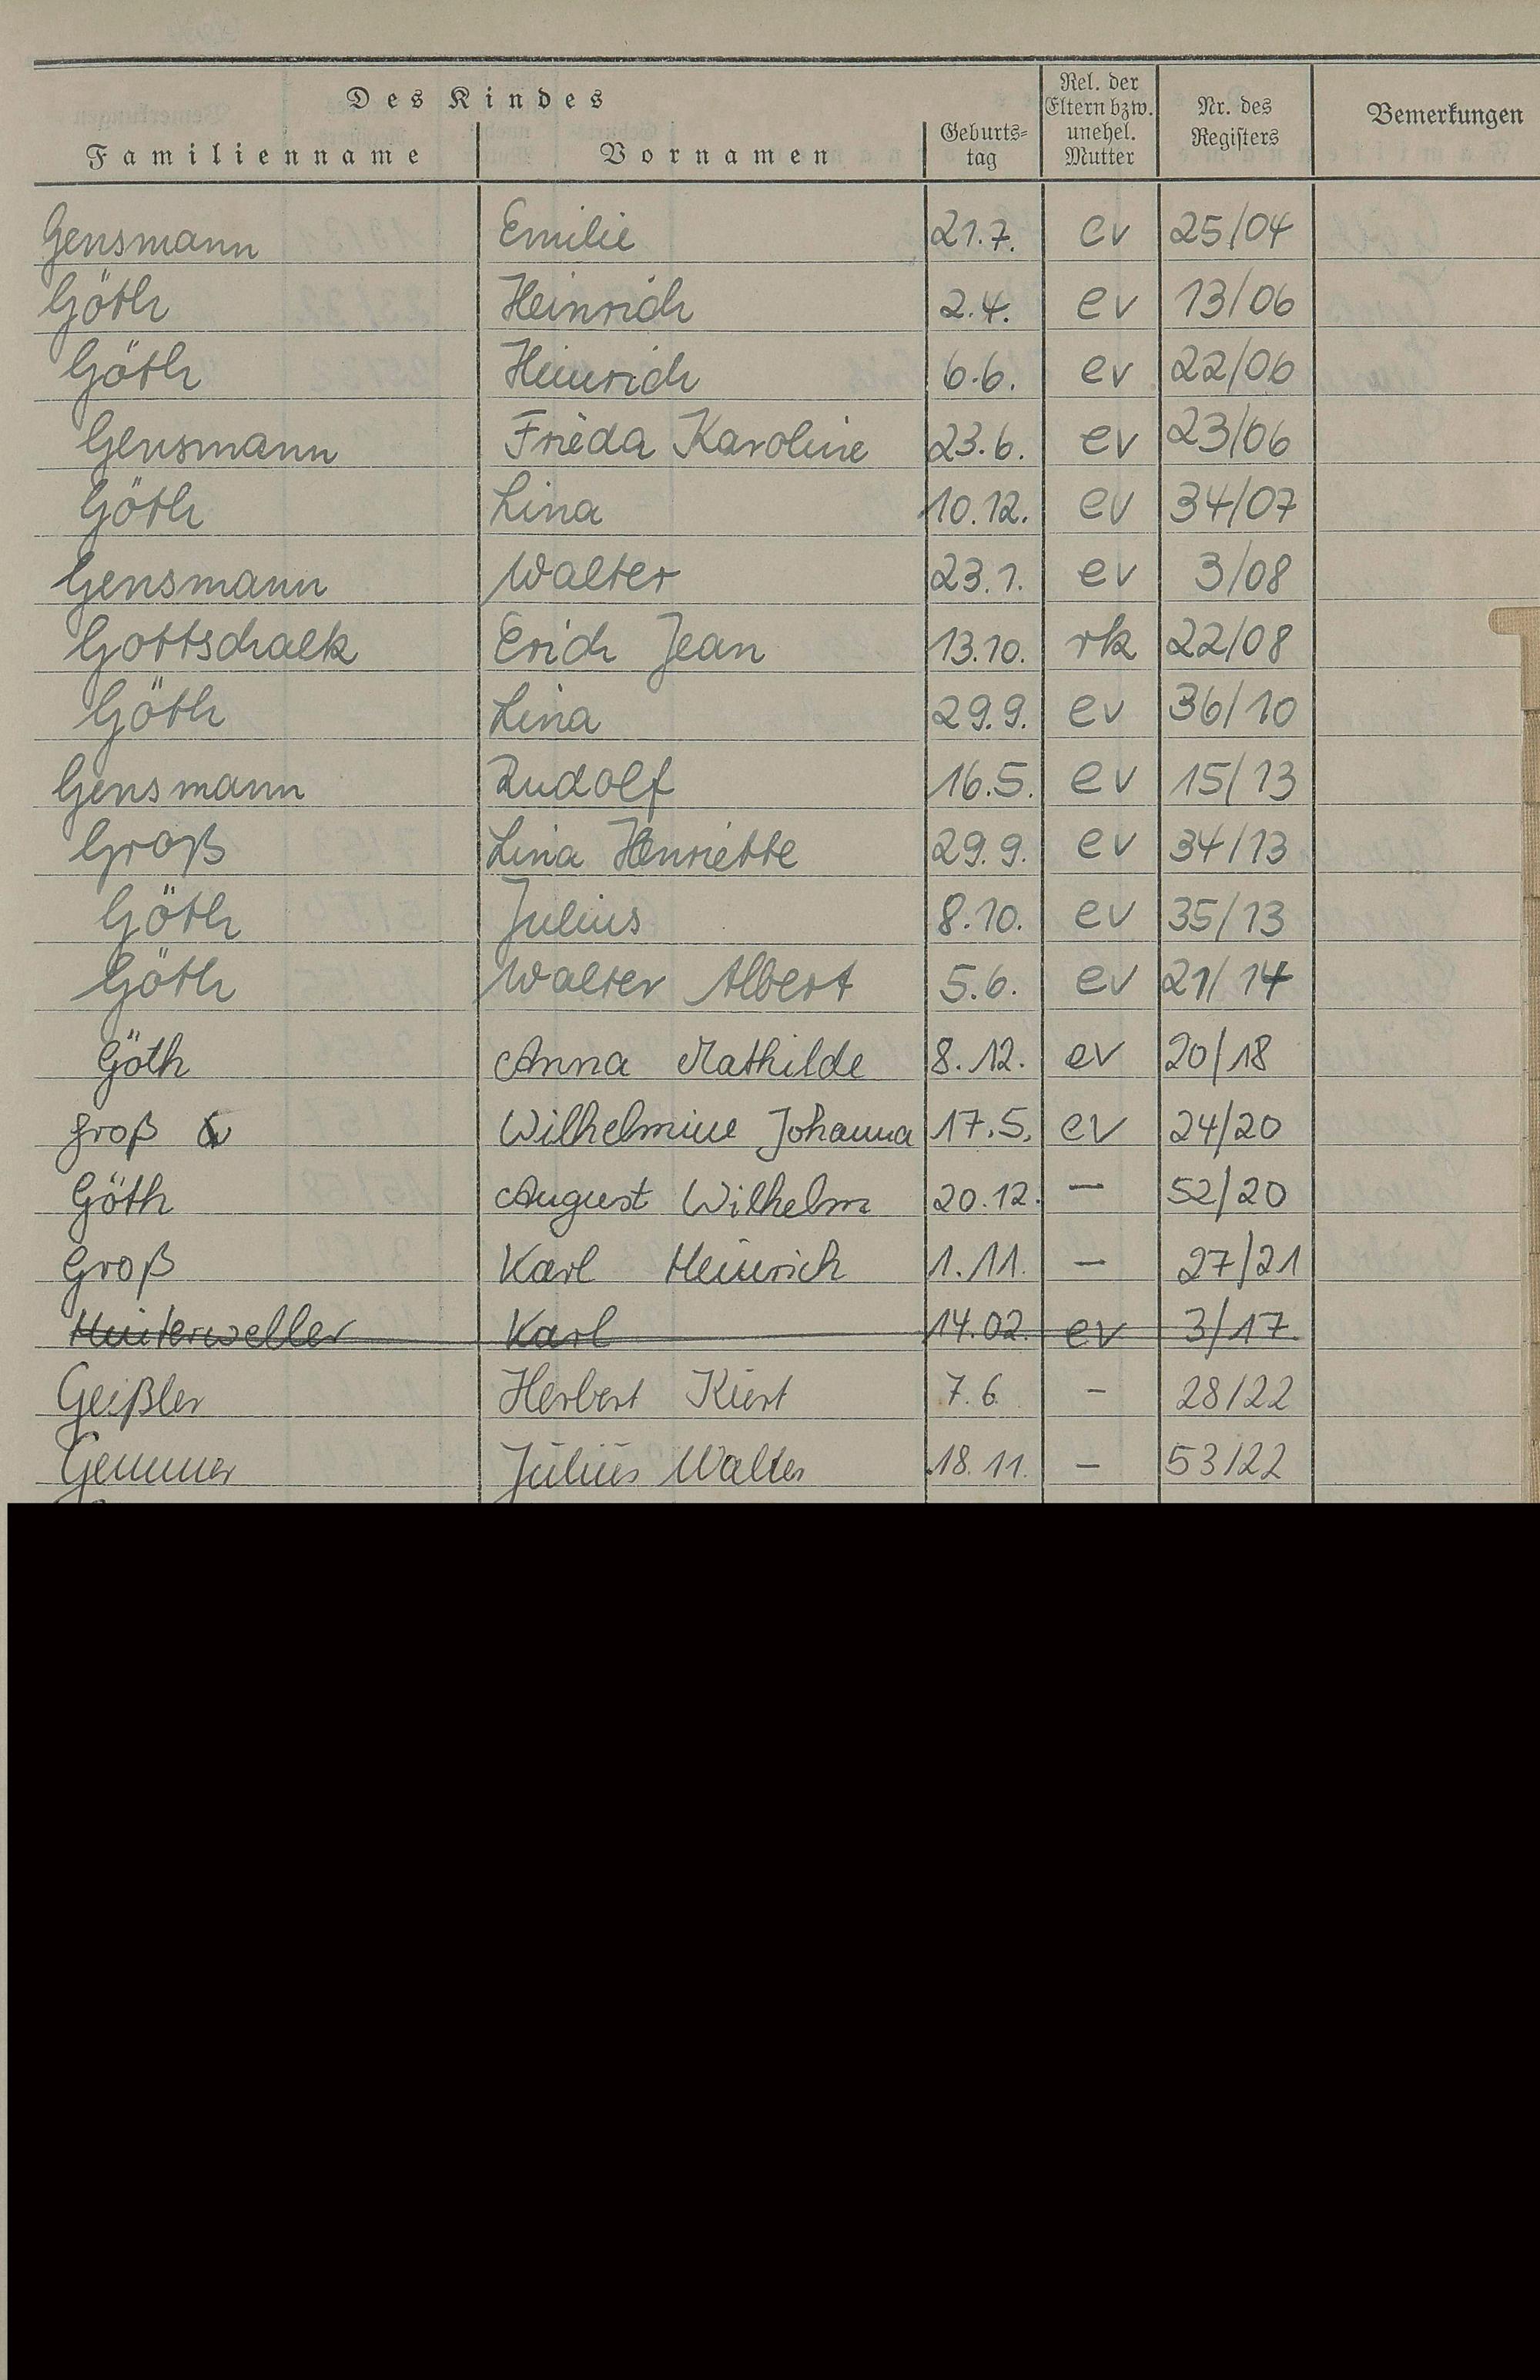 Des Kindes
Familienname Vornamen Geburts=tag Rel. der Eltern bzw. unehel. Mutter Nr. des Registers Bemerkungen
Gensmann Emilie 21.7. ev 25/04
Göth Heinrich 2.4. ev 13/06
Göth Heinrich 6.6. ev 22/06
Gensmann Frieda Karoline 23.6. ev 23/06
Göth Lina 10.12. ev 34/07
Gensmann Walter 23.1. ev 3/08
Gottschalk Erich Jean 13.10. rk 22/08
Göth Lina 29.9. ev 36/10
Gensmann Rudolf 16.5. ev 15/13
Groß Lina Henriette 29.9. ev 34/13
Göth Julius 8.10. ev 35/13
Göth Walter Albert 5.6. ev 21/14
Göth Anna Mathilde 8.12. ev 20/18
Groß Wilhelmine Johanna 17.5. ev 24/20
Göth August Wilhelm 20.12. — 52/20
Groß Karl Heinrich 1.11. — 27/21
Hinterweller Karl 14.02. ev 3/17
Geißler Herbert Kurt 7.6 - 28/22
Gemmer Julius Walter 18.11. - 53/22